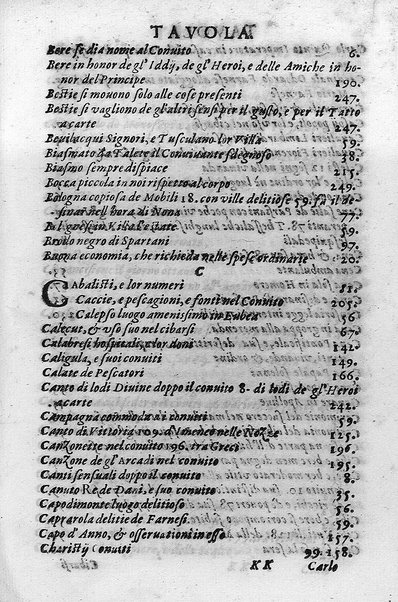 TAVOLA
Bere se dia nome al Conuito 6.
Bere in honor de gl'Iddij, de gl'Heroi, e delle Amiche in ho-
nor del Principe 190.
Bestie si mouono solo alle cose presenti 247.
Bestie si vagliono de gl'altri sensi per il gusto, e per il Tatto
a carte 247.
Beuilacqui Signori, e Tusculano lor Villa 59.
Biasmato da Talete il Conuitante sdegnoso 48.
Biasmo sempre dispiace 215.
Bocca piccola in noi rispetto al corpo 249.
Bologna copiosa de Mobili 18. con ville delitiose 59. fa il de-
sinar nell'hora di Nona 77.
59.
Brodo negro di Spartani 97.
Buona economia, che richieda nelle spese ordinarie 20.
C
CAbalisti, e lor numeri 11.
Caccie, e pescagioni, e fonti nel Conuito 205.
Calepso luogo amenissimo in Eubea 56.
Calecut, & vso suo nel cibarsi 67.
Calabresi hospitali, e lor doni 142.
Caligula, e suoi conuiti 149.
Calate de Pescatori 166.
Canto di lodi Diuine doppo il conuito 8. di lodi de gl'Heroi
a carte 242.
Campagna commoda ai conuiti 59.
Canto di Vittoria 109. d'Himeneo nelle Nozze 125.
Canzonette nel conuito 196. tra Greci 196.
Canzone de gl'Arcadi nel conuito 195.
Canti sensuali doppo il conuito 8.
Canuto Re de Dani, e suo conuito 35.
Capodimonte luogo delitioso 56.
Caprarola delitie de Farnesi. 59.
Capo d'Anno, & osseruationi in esso 157.
Charistij Conuiti 99. 158.
KK Carlo